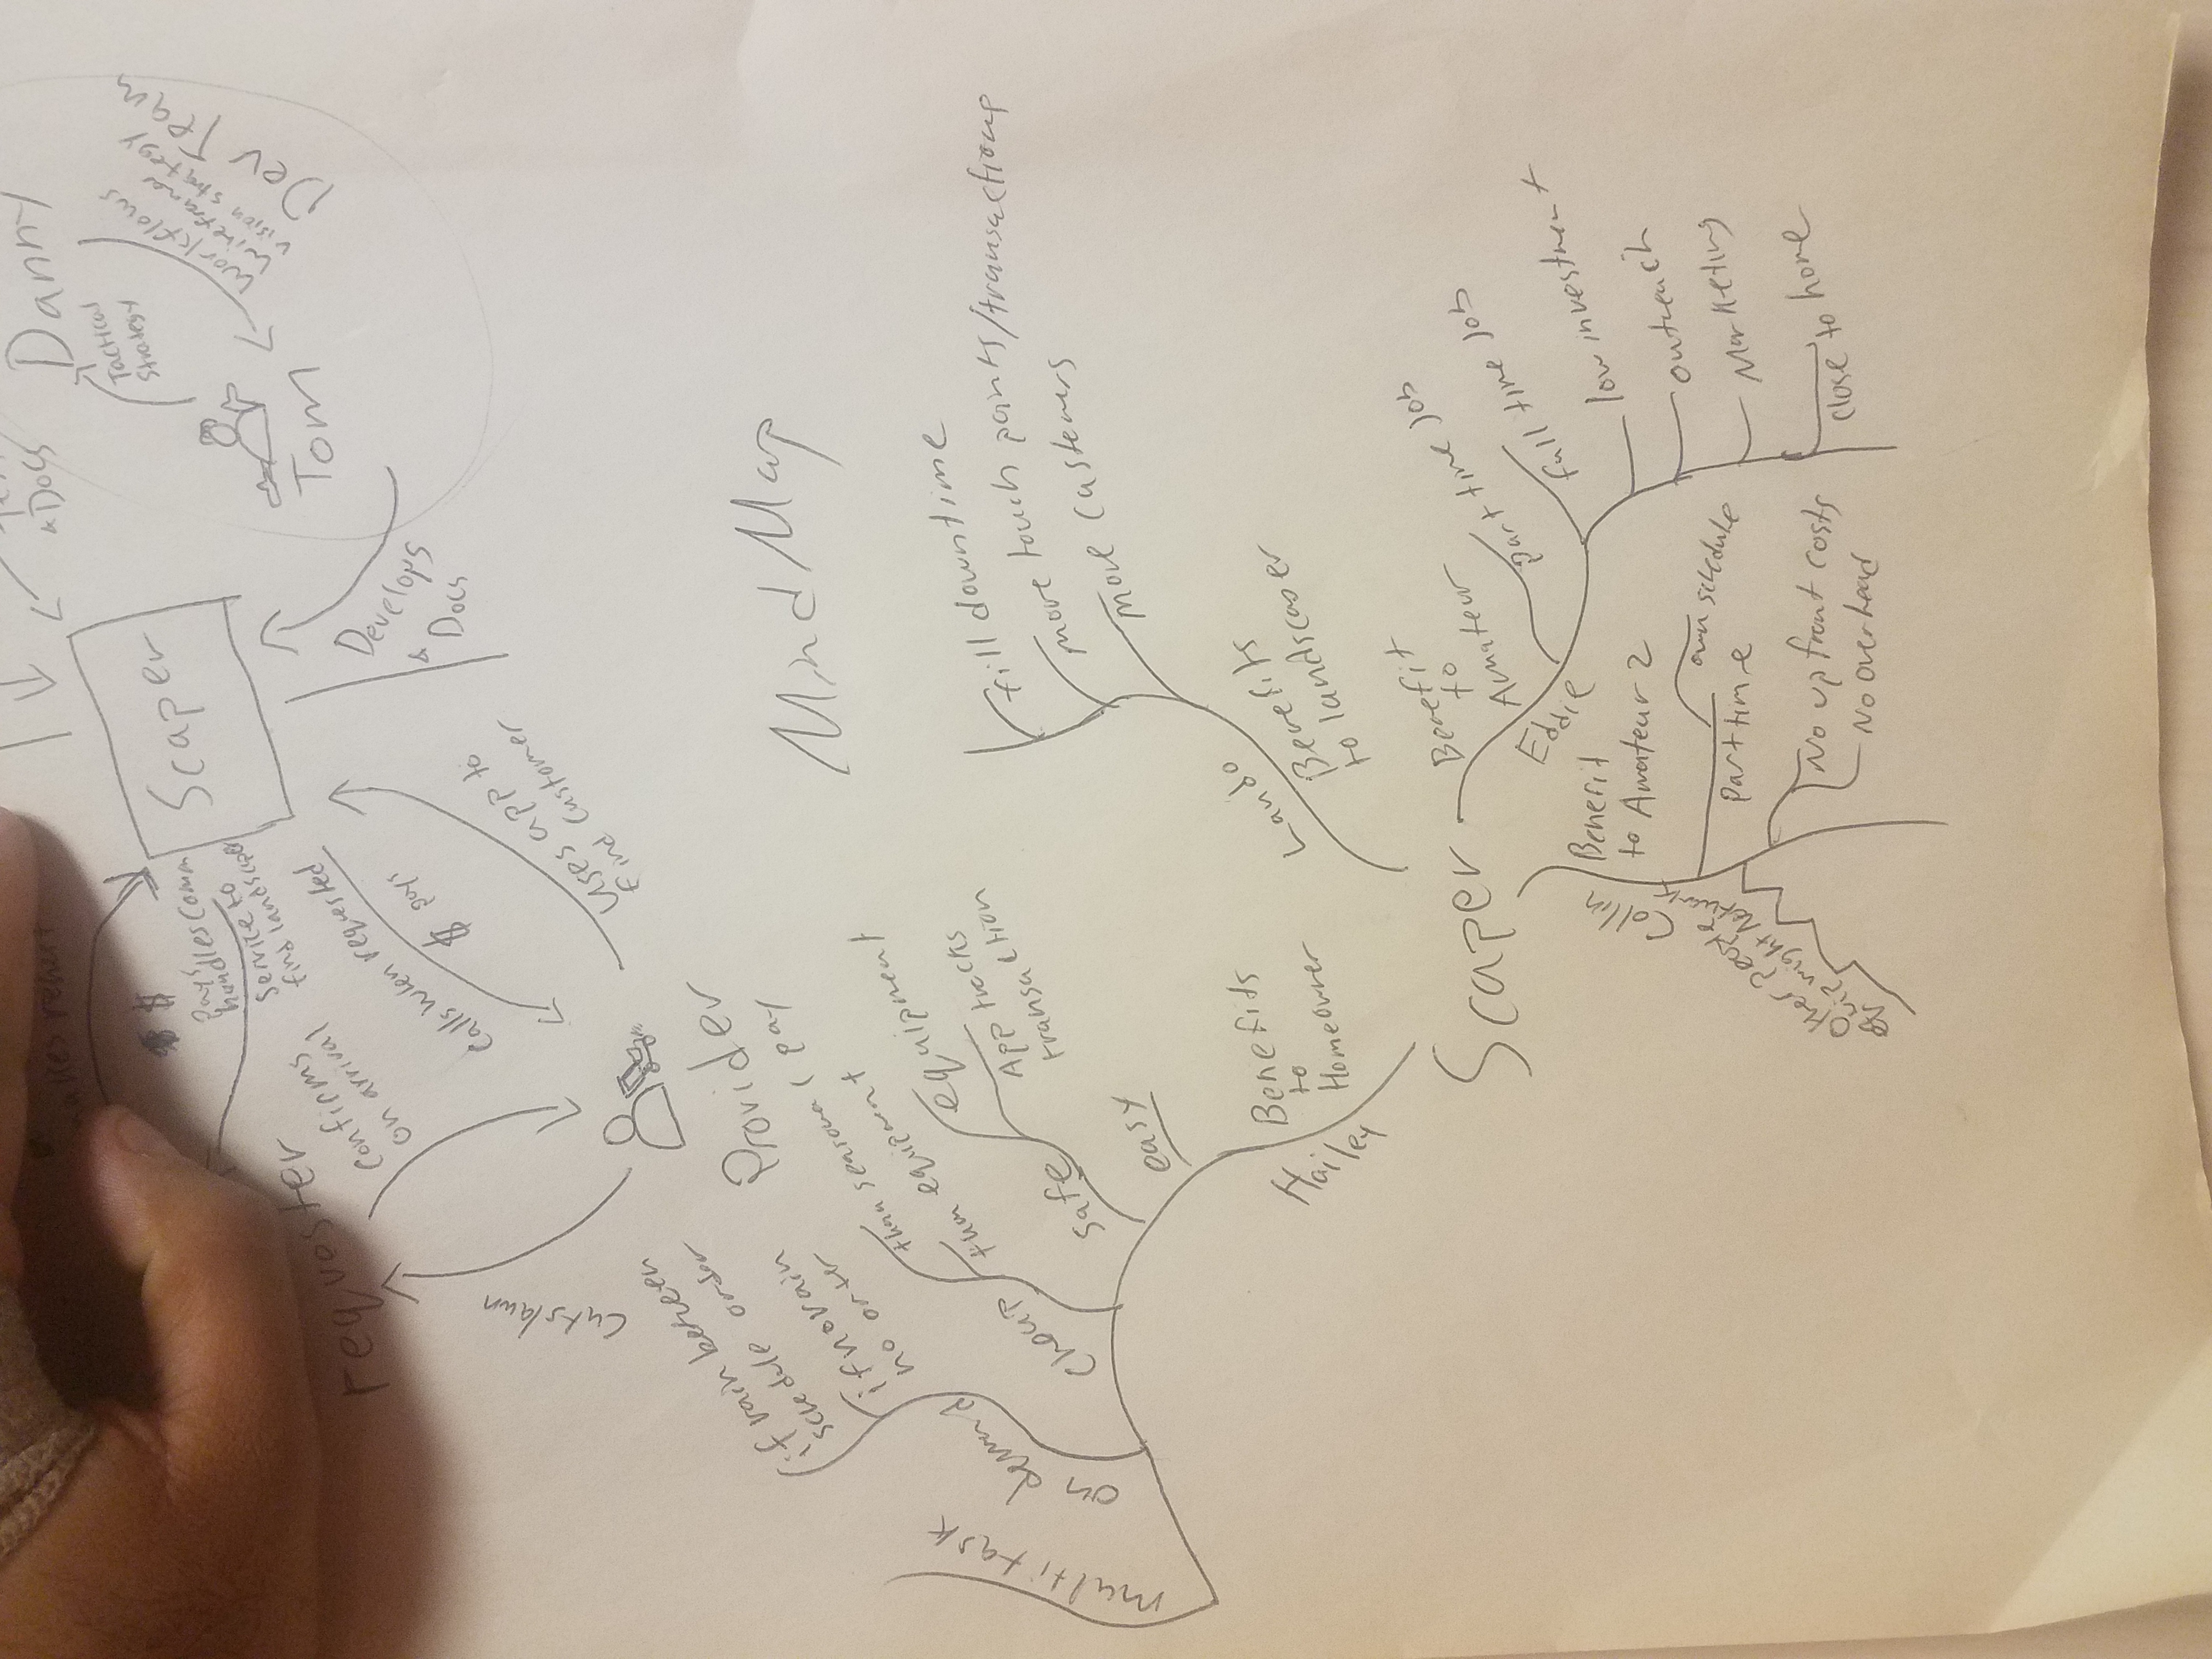 Danny
Tactical
Strategy
Workflows
Wireframe
Vision strategy
Dev Team
Tom
& Docs
Scaper
Develops
& Docs
uses app to
find customer
$ pays
calls when requested
handles comm
service to
find landscaper
$
confirms
on arrival
requester
cuts lawn
Provider
Mind Map
Scaper
Lando
Benefits
to landscaper
fill downtime
more touch points/transactions
more customers
Eddie
Benefit
to
Amateur
part time job
full time job
low investment
outreach
Marketing
close to home
Collin
Benefit
to Amateur 2
part time
own schedule
No up front costs
No overhead
Hailey
Benefits
to
Homeowner
easy
safe
equipment
App tracks
transaction
cheap
than seasonal pay
than equipment
on demand
if rain between
schedule order
if no rain
no order
multi task